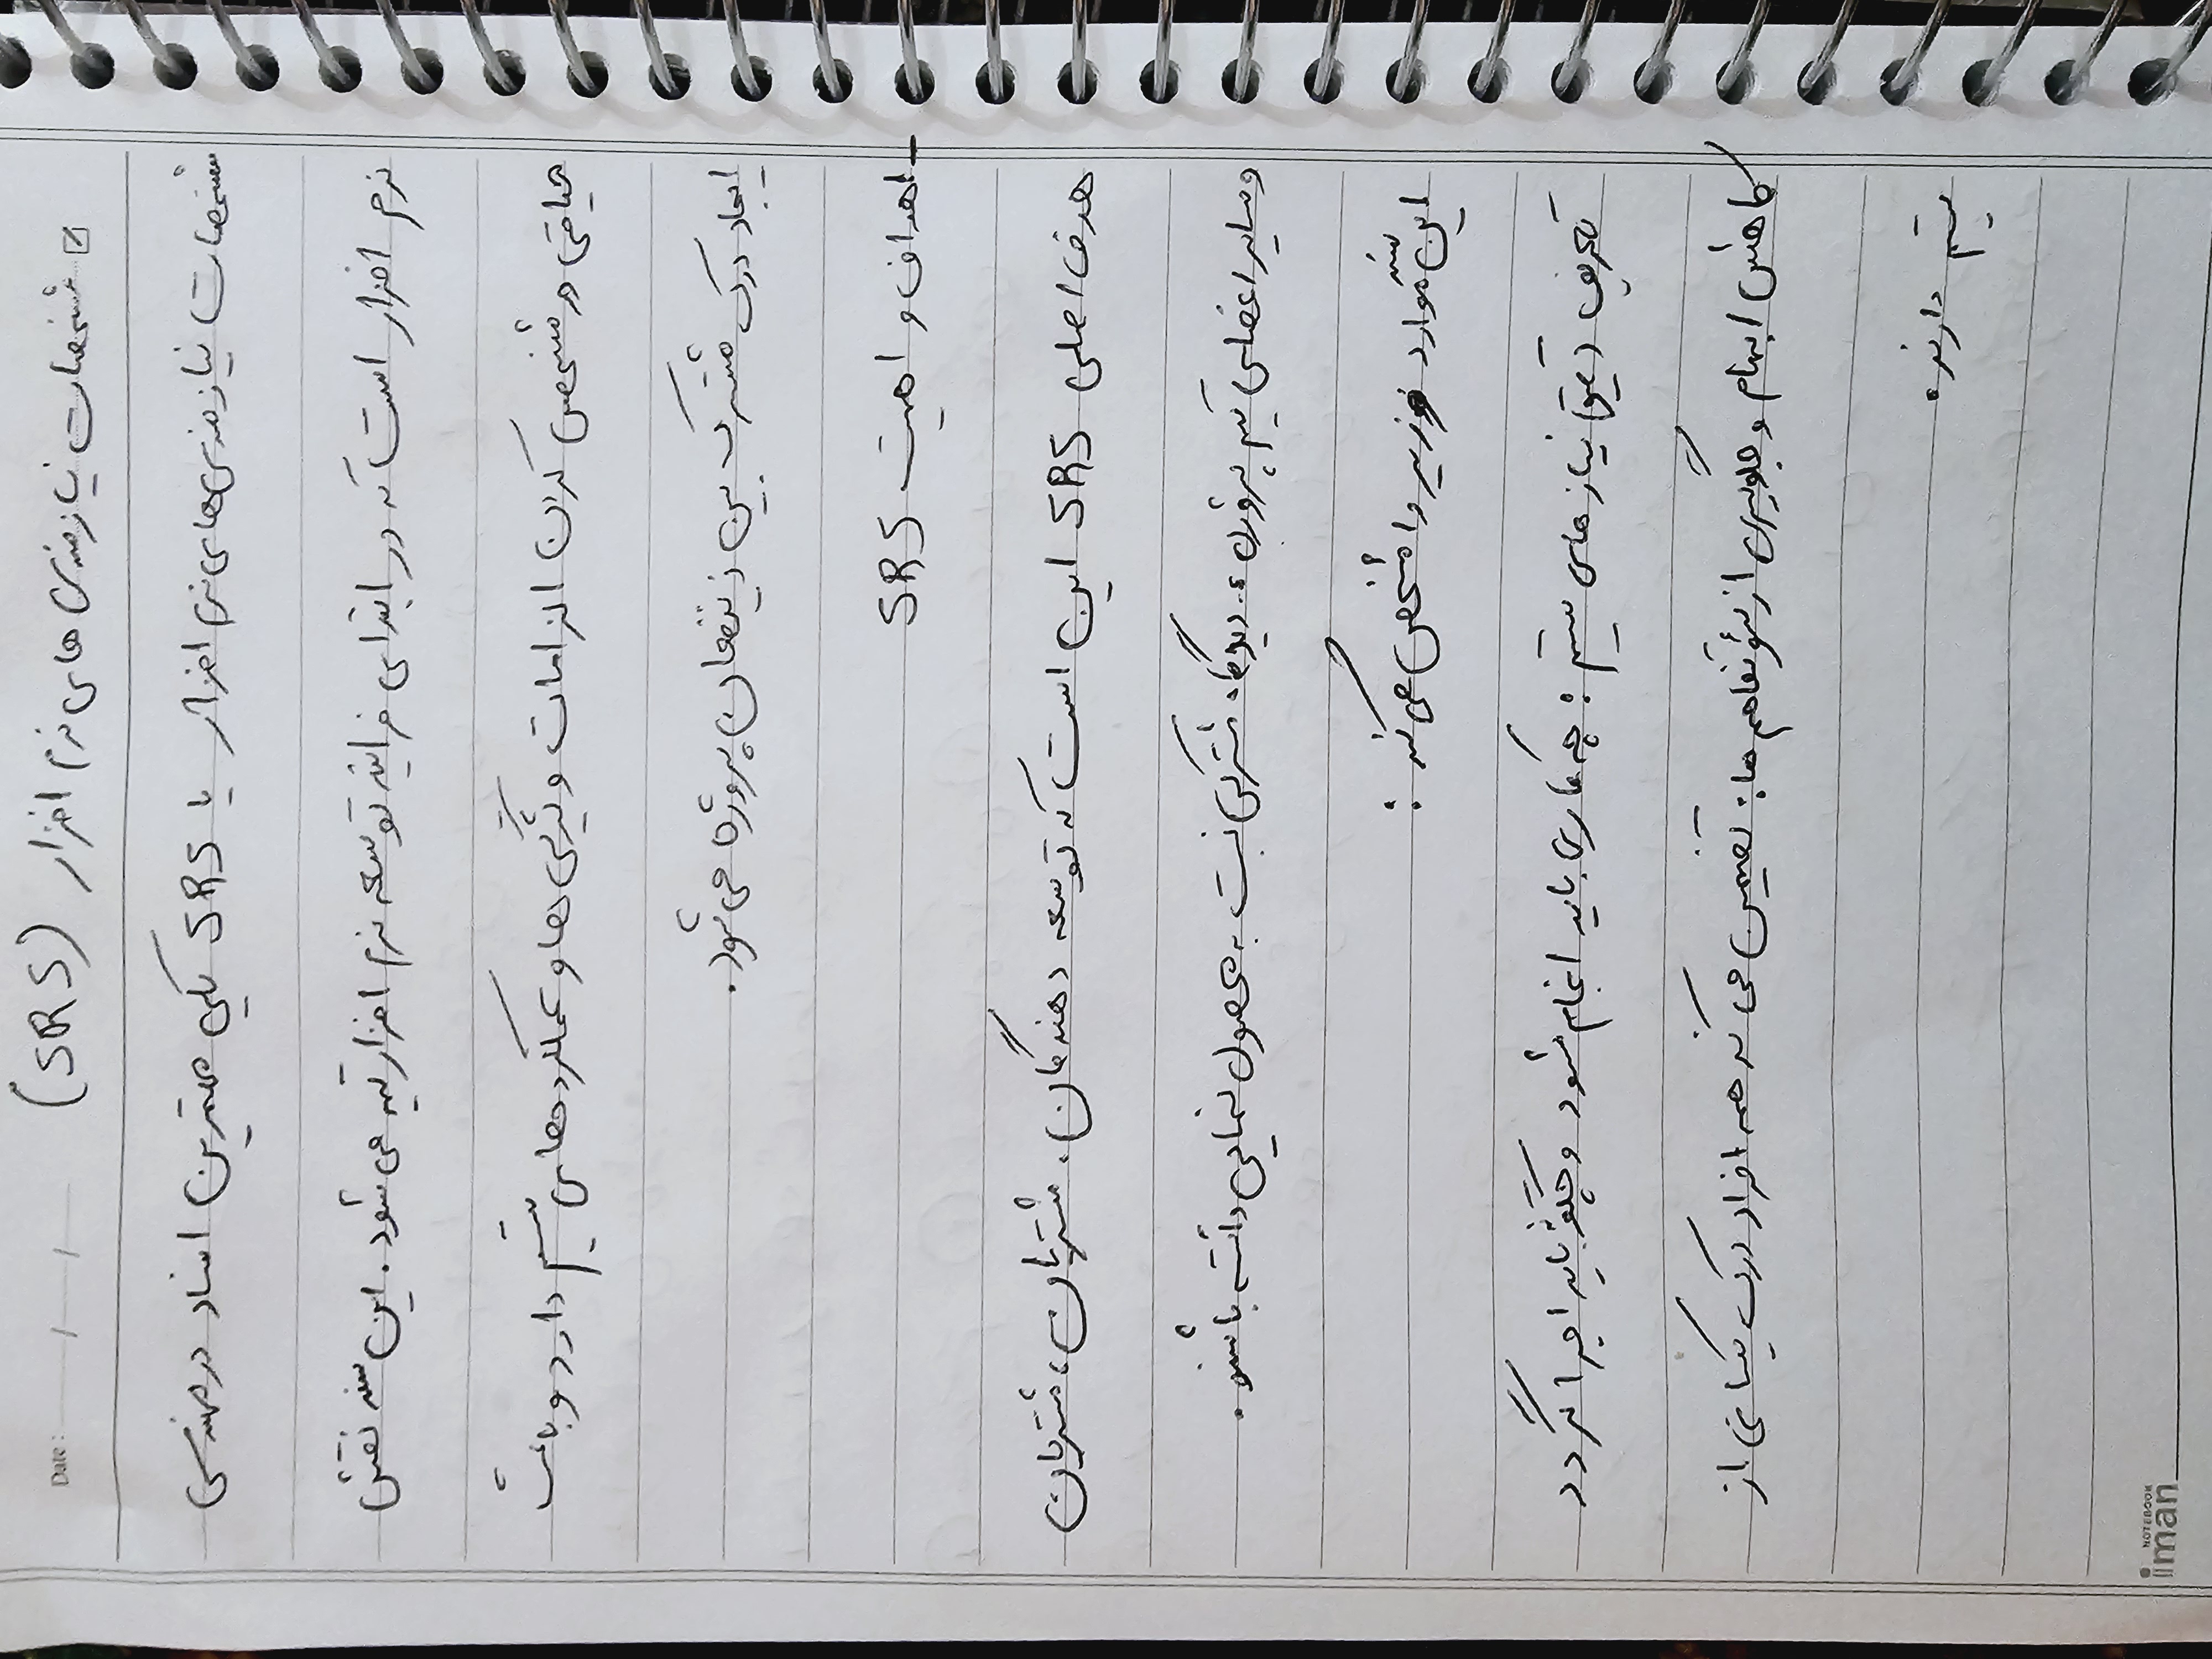 Date : / /
☑ مشخصات نیازمندی های نرم افزار (SRS)
مشخصات نیازمندی‌های نرم افزار یا SRS یکی مهمترین اسناد در مهندسی
نرم افزار است که در ابتدای فرایند توسعه نرم افزار تهیه می شود. این سند نقش
حیاتی در مشخص کردن الزامات ویژگی ها و عملکردهای سیستم دارد و باعث
ایجاد درک مشترک بین ذینفعان پروژه می شود.
- اهداف و اهمیت SRS
هدف اصلی SRS این است که توسعه دهندگان، مشتریان، مشتریان
و سایر اعضای تیم پروژه، دیدگاه مشترکی نسبت به محصول نهایی داشته باشند.
این سند موارد زیر را مشخص می کند:
تعریف دقیق نیازهای سیستم: چه کاری باید انجام شود و چگونه باید اجرا گردد
کاهش ابهام و جلوگیری از سوتفاهم ها: تضمین می کند همه افراد درک یکسانی از
سیستم دارند.
NOTEBOOK
iman